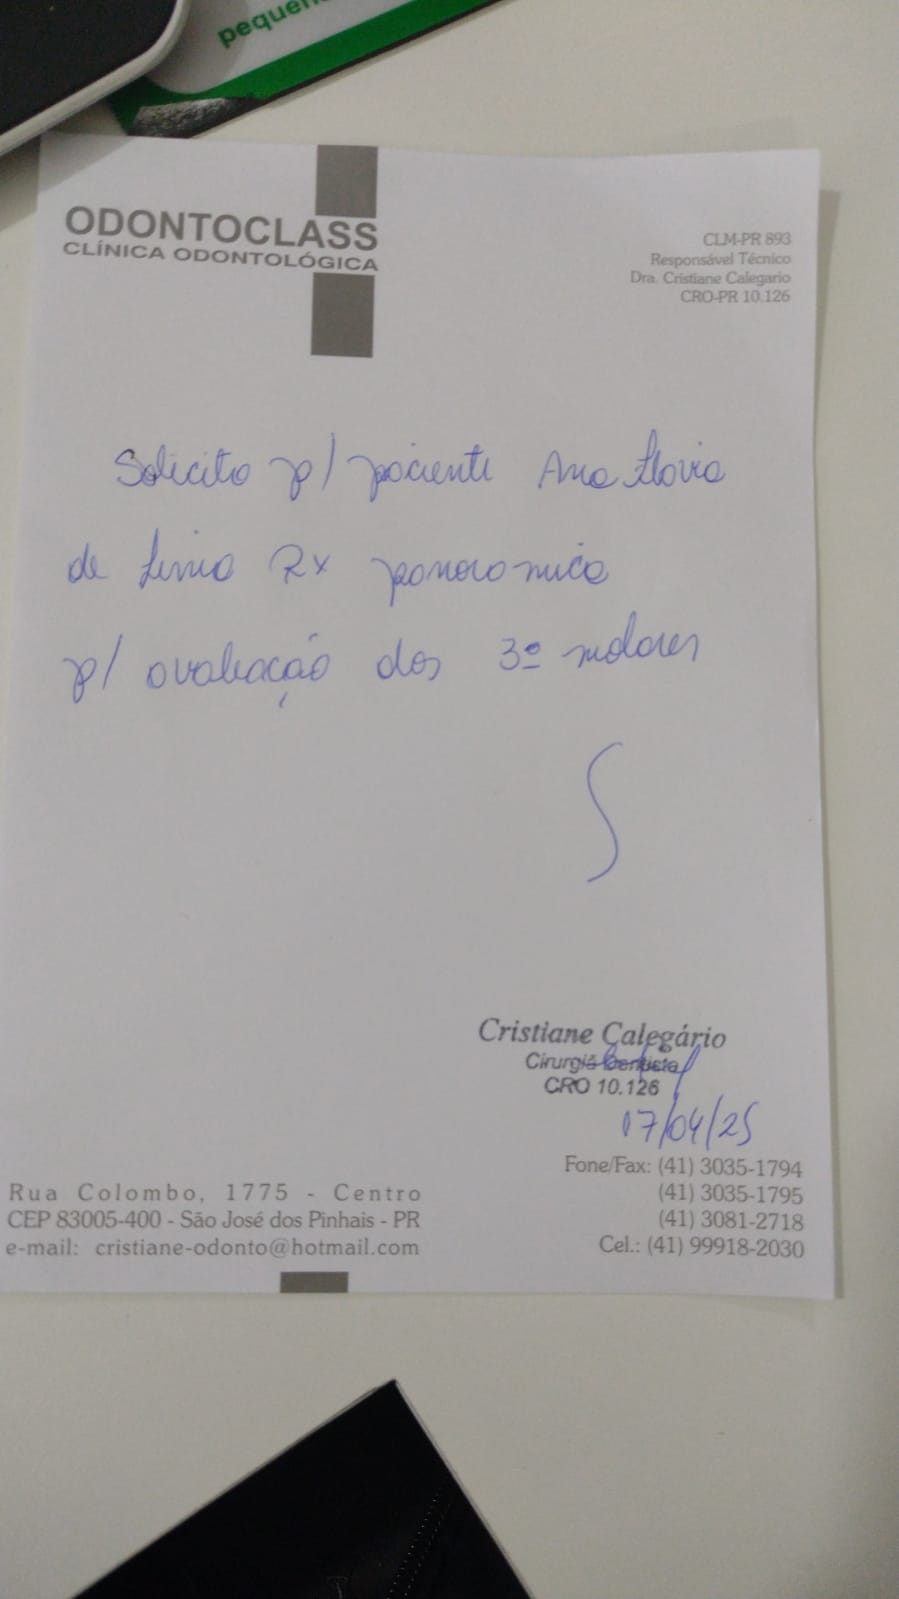 pequen
ODONTOCLASS
CLÍNICA ODONTOLÓGICA
CLM-PR 893
Responsável Técnico
Dra. Cristiane Calegario
CRO-PR 10.126
Solicito p/ paciente Ana Flavia
de Lima Rx panoromica
p/ avaliação dos 3º molares
Cristiane Calegário
Cirurgiã Dentista
CRO 10.126
17/04/25
Fone/Fax: (41) 3035-1794
(41) 3035-1795
(41) 3081-2718
Cel.: (41) 99918-2030
Rua Colombo, 1775 - Centro
CEP 83005-400 - São José dos Pinhais - PR
e-mail: cristiane-odonto@hotmail.com